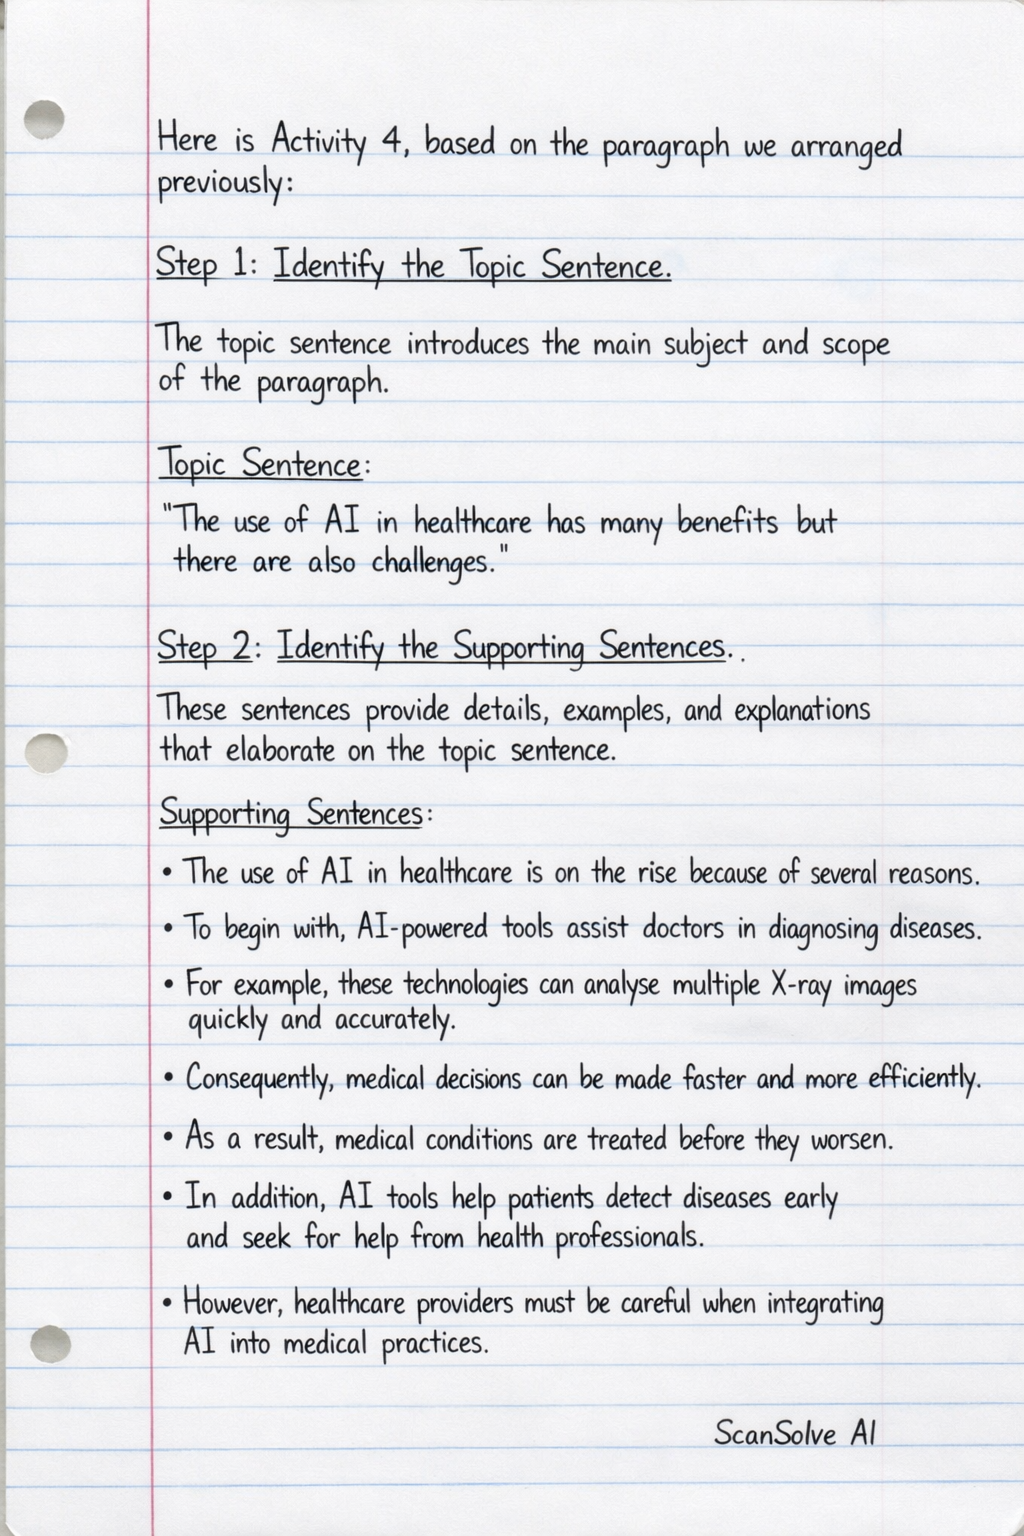 Here is Activity 4, based on the paragraph we arranged
previously:
Step 1: Identify the Topic Sentence.
The topic sentence introduces the main subject and scope
of the paragraph.
Topic Sentence:
"The use of AI in healthcare has many benefits but
there are also challenges."
Step 2: Identify the Supporting Sentences. .
These sentences provide details, examples, and explanations
that elaborate on the topic sentence.
Supporting Sentences:
• The use of AI in healthcare is on the rise because of several reasons.
• To begin with, AI-powered tools assist doctors in diagnosing diseases.
• For example, these technologies can analyse multiple X-ray images
quickly and accurately.
• Consequently, medical decisions can be made faster and more efficiently.
• As a result, medical conditions are treated before they worsen.
• In addition, AI tools help patients detect diseases early
and seek for help from health professionals.
• However, healthcare providers must be careful when integrating
AI into medical practices.
ScanSolve AI